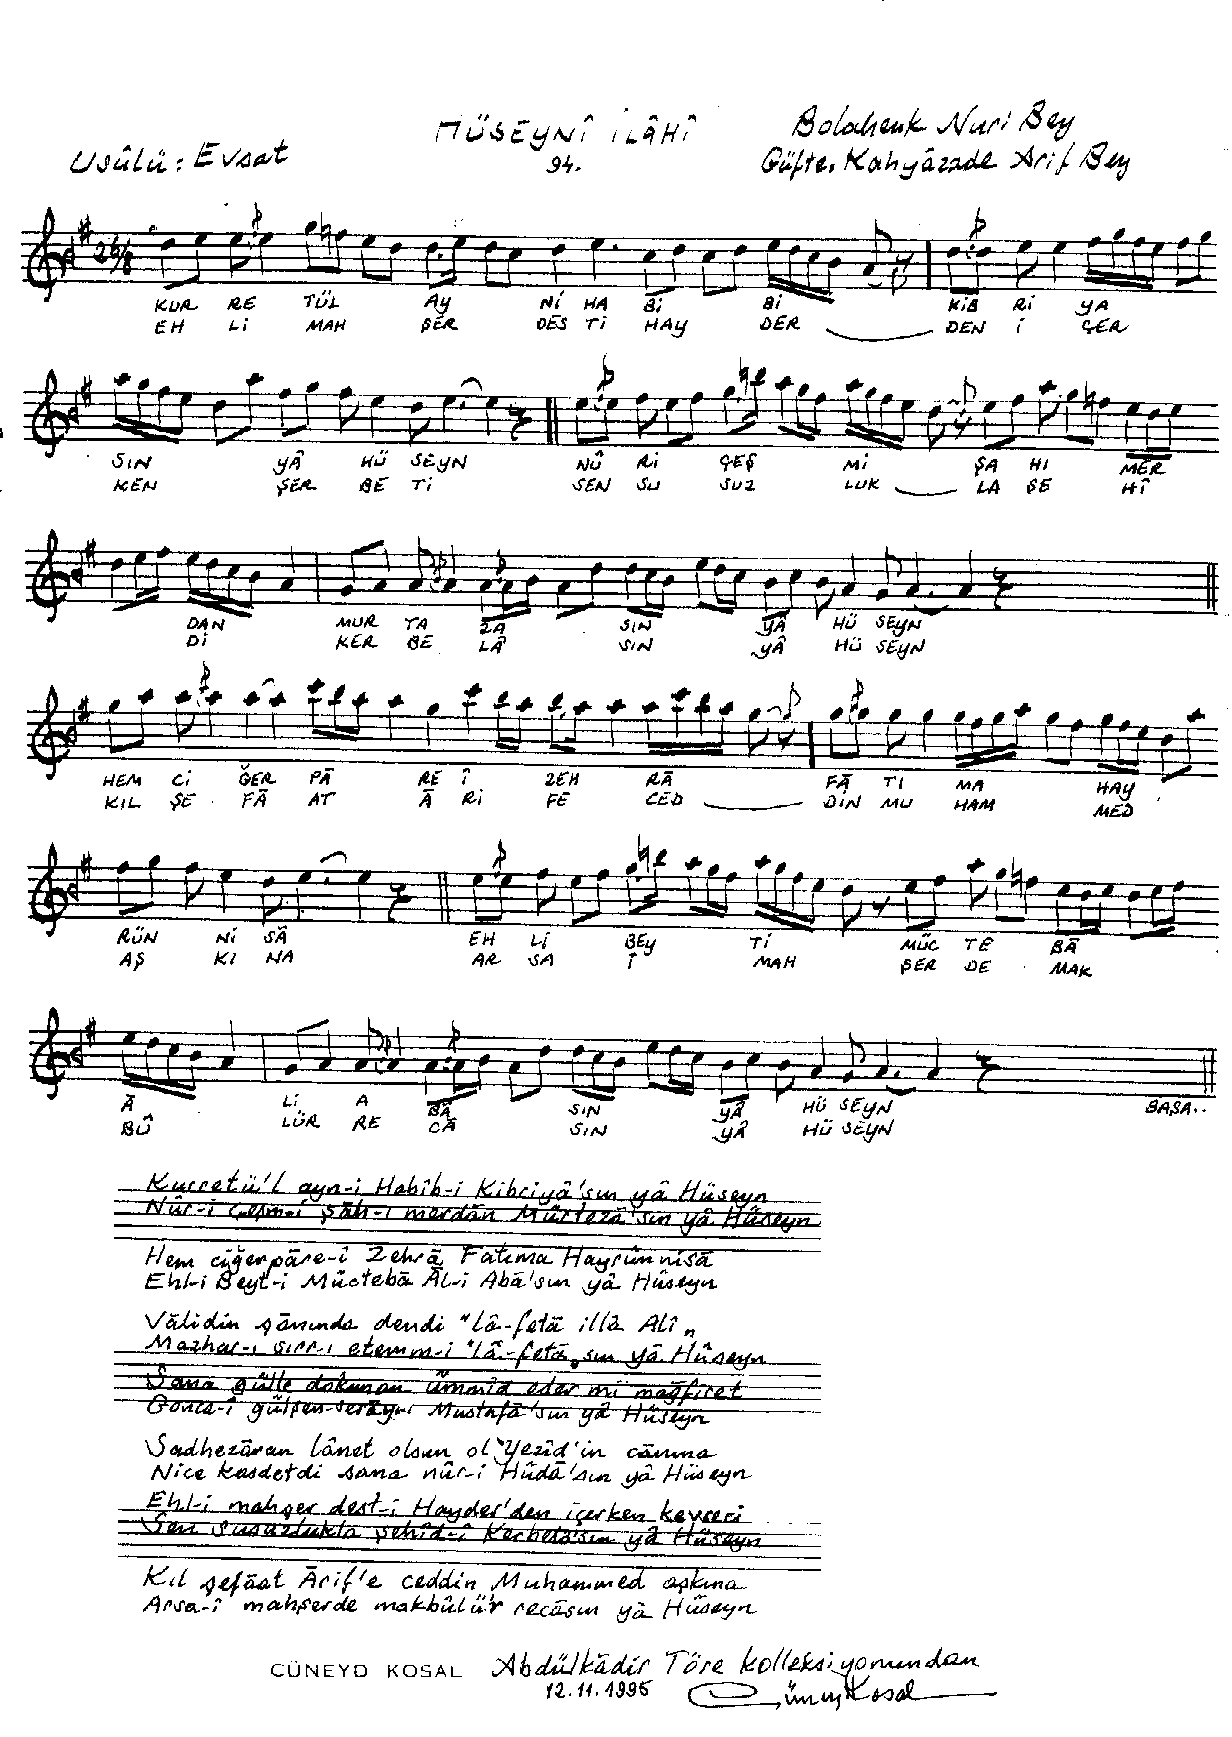 HÜSEYNÎ İLÂHÎ
94.
Usûlü : Evsat
Bolahenk Nuri Bey
Güfte. Kahyâzade Arif Bey
26/8
KUR RE TÜL AY Nİ HA Bİ Bİ KİB Rİ YA
EH Lİ MAH ŞER DES Tİ HAY DER DEN İ ÇER
SIN YÂ HÜ SEYN NÛ Rİ ÇEŞ Mİ ŞA HI MER
KEN ŞER BE Tİ SEN SU SUZ LUK LA ŞE HÎ
DAN MUR TA ZA SIN YÂ HÜ SEYN
Dİ KER BE LÂ SIN YÂ HÜ SEYN
HEM Cİ ĞER PĀ RE Î ZEH RĀ FĀ TI MA HAY
KIL ŞE FĀ AT Ā Rİ FE CED DİN MU HAM MED
RÜN Nİ SĀ EH Lİ BEY Tİ MÜC TE BĀ
AŞ KI NA AR SA İ MAH ŞER DE MAK
Ā Lİ A BĀ SIN YÂ HÜ SEYN BAŞA..
BÛ LÜR RE CĀ SIN YÂ HÜ SEYN
Kurretü'l ayn-i Habîb-i Kibriyâ'sın yâ Hüseyn
Nûr-i çeşm-i şāh-ı merdān Mürtezā'sın yâ Hüseyn
Hem ciğerpāre-i Zehrā Fatıma Hayrünnisā
Ehl-i Beyt-i Müctebā Āl-i Abā'sın yâ Hüseyn
Vālidin şānında dendi "lâ-fetā illâ Alî"
Mazhar-ı sırr-ı etemm-i "lâ-fetā"sın yâ Hüseyn
Sana gülle dokunan ümmîd eder mi mağfiret
Gonca-î gülşen-serāy-ı Mustafā'sın yâ Hüseyn
Sadhezāran lânet olsun ol Yezîd'in cānına
Nice kasdetdi sana nûr-i Hüdā'sın yâ Hüseyn
Ehl-i mahşer dest-i Hayder'den içerken kevseri
Sen susuzlukla şehîd-î Kerbelā'sın yâ Hüseyn
Kıl şefāat Ārif'e ceddin Muhammed aşkına
Arsa-î mahşerde makbûlü'r recāsın yâ Hüseyn
CÜNEYD KOSAL Abdülkādir Töre kolleksiyonundan
12.11.1995 Cüneyd Kosal